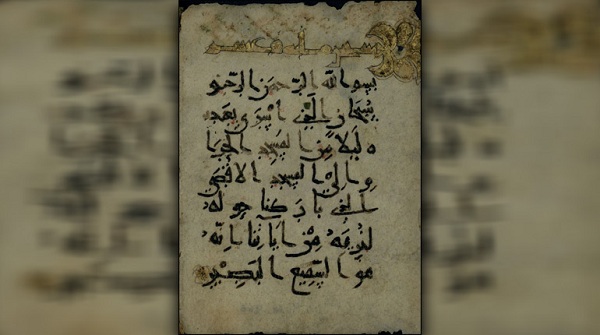 مائه وعشر
بسم الله الرحمن الرحيم
سبحان الذي اسرى بعبد
ه ليلا من المسجد الحرا
م الى المسجد الاقصى
الذي باركنا حوله
لنريه من اياتنا انه
هو السميع البصير